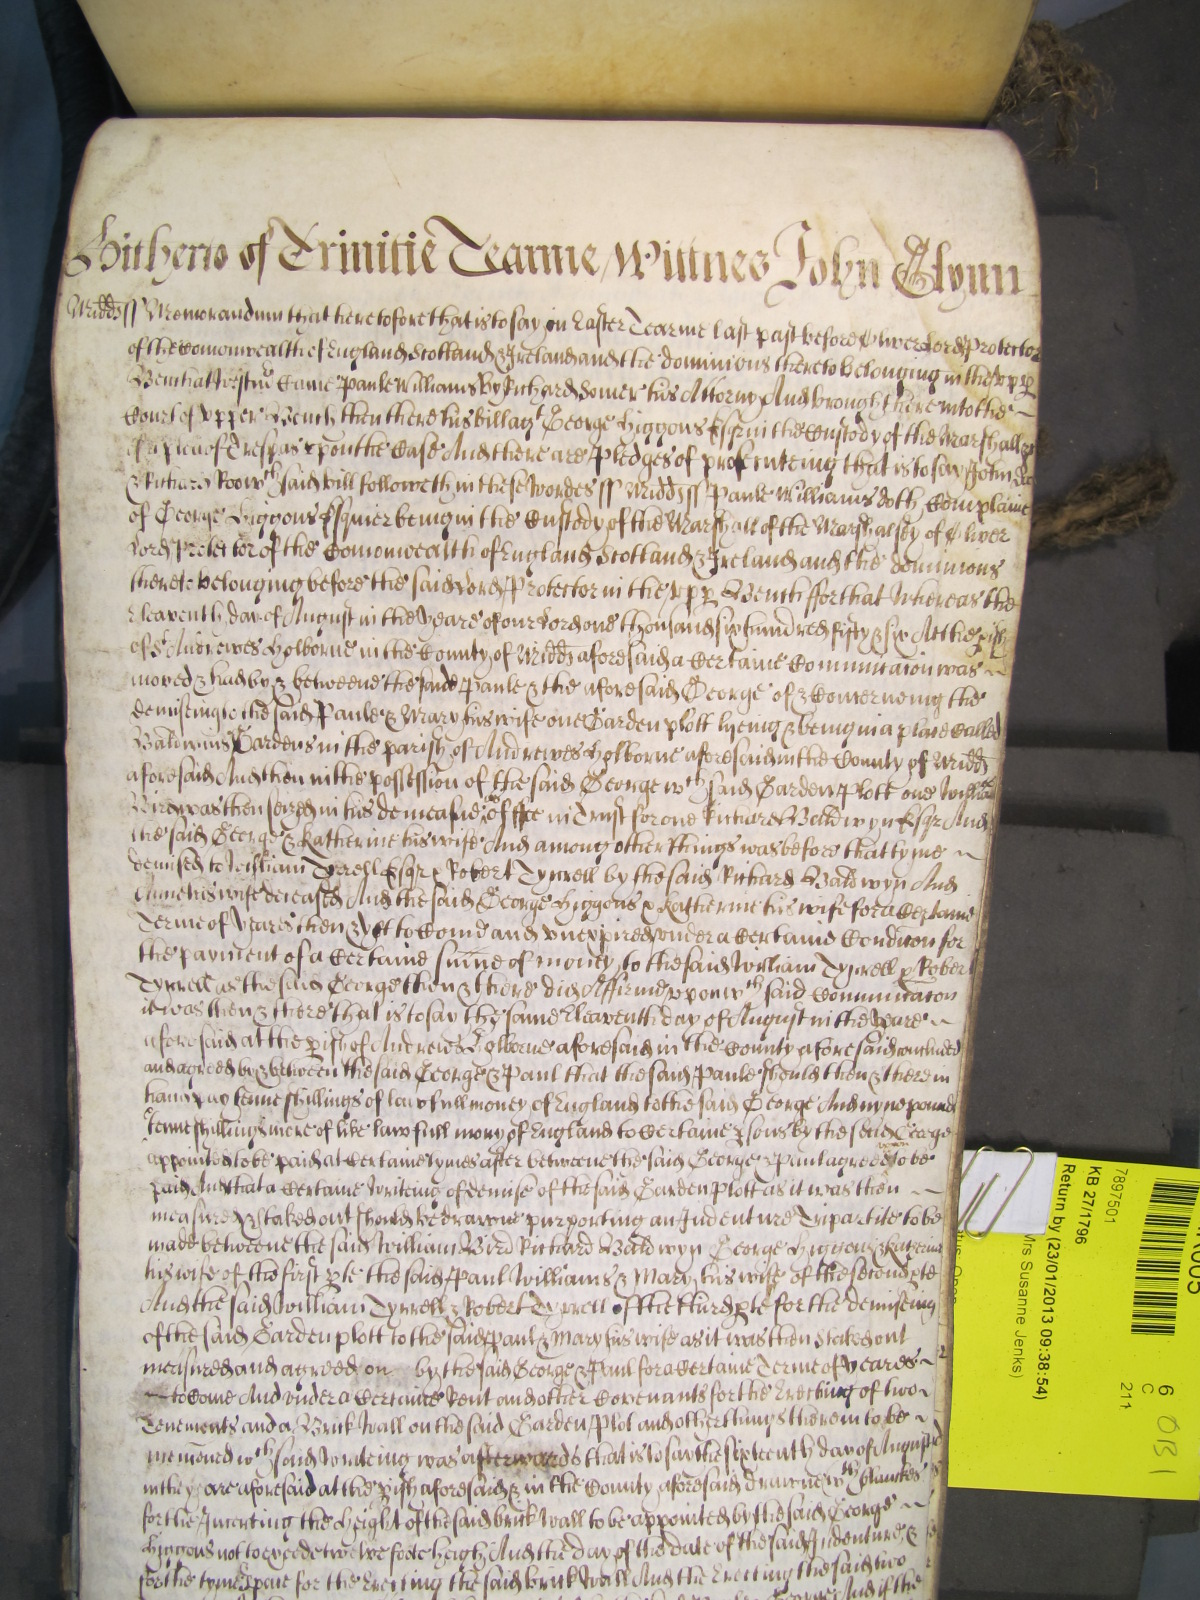 Hitherto of Trinitie Tearme Wittnes John Glynn
Midds ss Memorandum that heretofore that is to say in Easter Tearme last past before Oliver Lord Protector
of the Comonwealth of England Scotland & Ireland and the dominions thereto belonging in the upp
Bench at Westmr Came Paule Williams By Richard Somer his Attorny And brought here into the
Court of upper Bench then there his bill agt George Higgons Esqr in the Custody of the Marshall &c
of a plea of Trespas upon the Case And there are Pledges of prosecuteing that is to say John Doe
& Richard Roo wch said bill followeth in these wordes ss Midds ss Paule Williams doth Complaine
of George Higgons Esquier being in the Custody of the Marshall of the Marshalsey of Oliver
Lord Protector of the Comonwealth of England Scotland & Ireland and the dominions
thereto belonging before the said Lord Protector in the upp Bench ffor that Whereas the
Eleaventh day of August in the yeare of our Lord one thousand six hundred fifty & six At the pish
of St Andrewes Holborne in the County of Midds aforesaid a Certaine Communicacion was
moved & had by & betweene the said Paule & the aforesaid George of & Concerneing the
demiseing to the said Paule & Mary his wife one Garden plott lyeing & being in a place Called
Baldwins Gardens in the parish of Andrewes Holborne aforesaid in the County of Midds
aforesaid And then in the possession of the said George wch said Garden Plott one William
Bird was then seized in his demeasne as of ffee in Trust for one Richard Baldwyn Esqr And
the said George & Katherine his wife And among other things was before that tyme
demised to William Tyrrell Esqr & Robert Tyrrell by the said Richard Baldwyn And
Anne his wife deceased And the said George Higgons & Katherine his wife for a Certaine
Terme of yeares then & yett to Come and unexpired under a Certaine Condicon for
the payment of a Certaine sume of money to the said William Tyrrell & Robert
Tyrrell as the said George then & there did Affirme upon wch said Communicacon
it was then & there that is to say the same Eleaventh day of August in the yeare
aforesaid at the pish of Andrewes Holborne aforesaid in the County aforesaid concluded
and agreed by & betweene the said George & Paul that the said Paule should then & there in
hand pay tenne shillings of lawfull money of England to the said George And nyne pounds
tenne shillings more of like lawfull mony of England to Certaine psons by the said George
appointed to be paid at Certaine tymes after betweene the said George & Paul agreed to be
paid And that a Certaine Writeing of demise of the said Garden Plott as it was then
measured & staked out should be drawne purporting an Indenture Tripartite to be
made betweene the said William Bird Richard Baldwyn George Higgons & Katherine
his wife of the first pte the said Paul Williams & Mary his wife of the second pte
And the said William Tyrrell & Robert Tyrrell of the third pte for the demiseing
of the said Garden plott to the said Paul & Mary his wife as it was then staked out
measured and agreed on by the said George & Paul for a Certaine Terme of yeares
to Come And under a Certaine Rent and other Covenants for the Erecting of two
Tenements and a Brick wall on the said Garden Plot and other things therein to be
menconed wch said Writeing was afterwards that is to say the sixteenth day of August
in the yeare aforesaid at the pish aforesaid & in the County aforesaid drawne wth blanckes
for the Inserting the height of the said brick wall to be appointed by the said George
Higgons not to exceede twelve foote heigh And the day of the date of the said Indenture &
for the tyme & place for the Erecting the said brick Wall And the Erecting the said two
George And if the
7897501
KB 27/1796
Return by (23/01/2013 09:38:54)
Mrs Susanne Jenks)
6
C
211